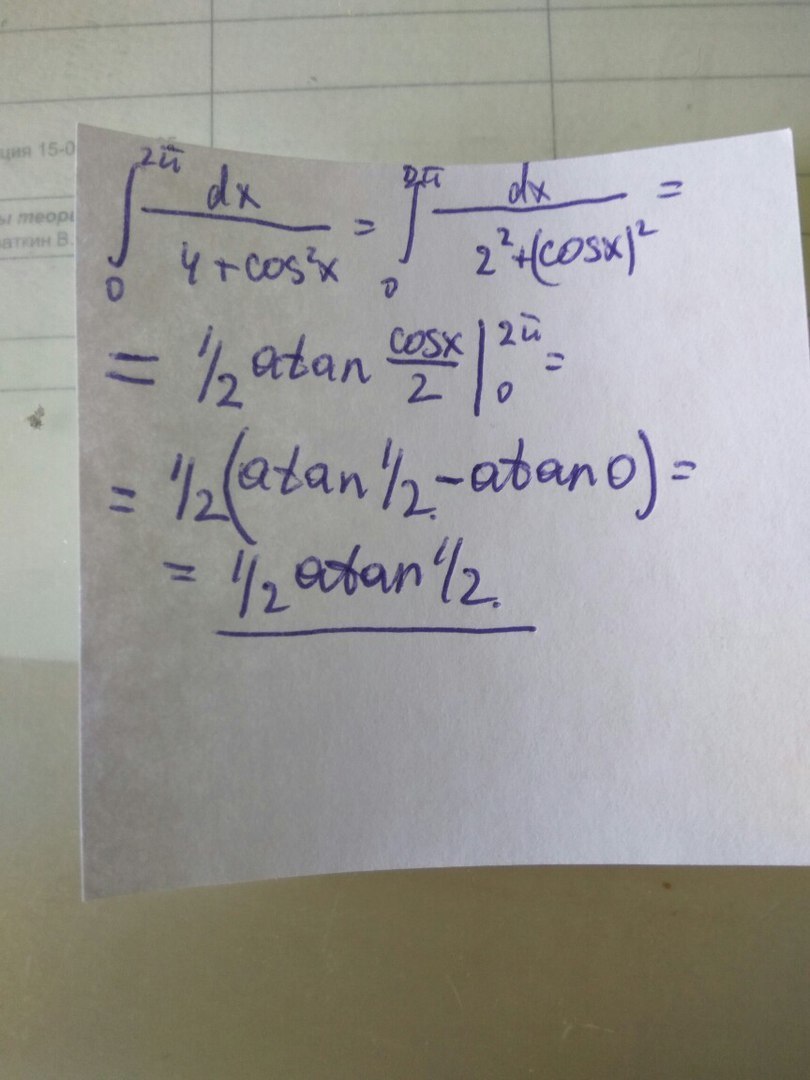 ция 15-0
ы теори
аткин В.
∫₀^{2π} dx / (4 + cos²x) = ∫₀^{2π} dx / (2² + (cosx)²) =
= 1/2 atan cosx/2 |₀^{2π} =
= 1/2 (atan 1/2 - atan 0) =
= 1/2 atan 1/2.